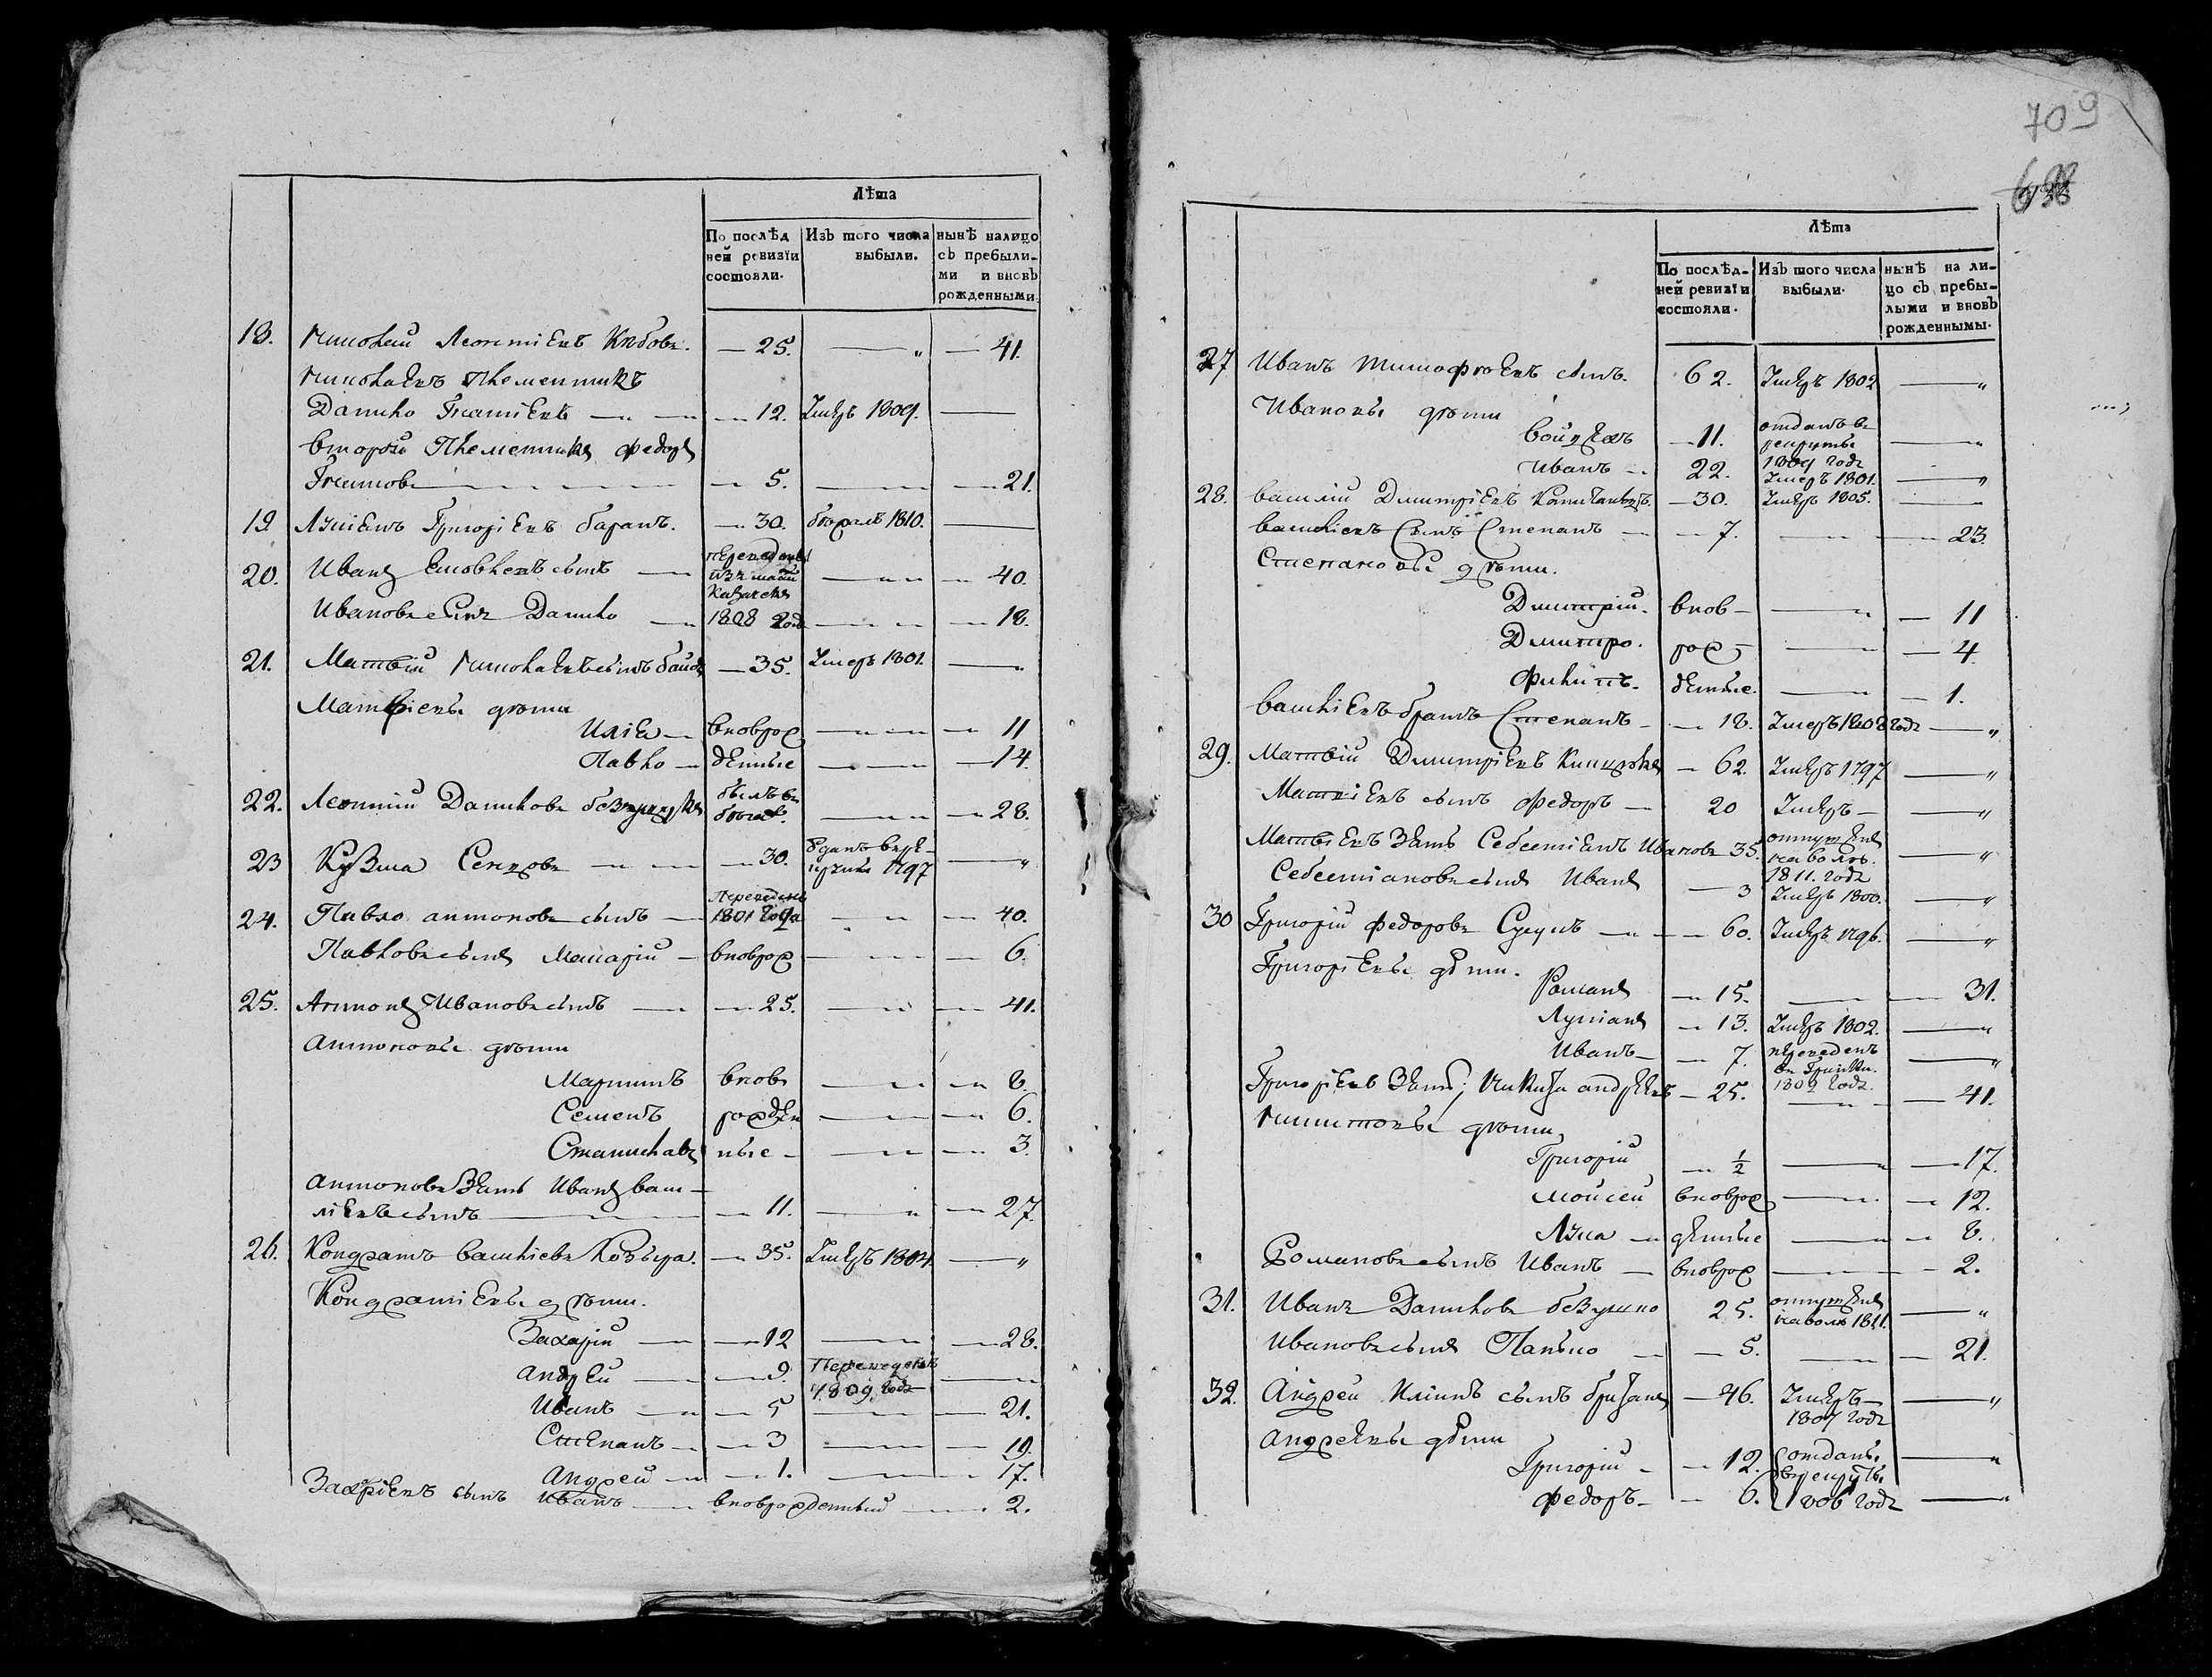 Лѣта
По послѣд
ней ревизїи
состояли.
Изъ того числа
выбыли.
нынѣ налицо
съ пребыли-
ми и вновь
рожденными.
18. Николай Леонтіевъ — 25. — „ — 41.
Николаевъ Племенникъ
Данило Игнатіевъ — 12. Умеръ 1809. —
Второй Племенникъ Федоръ
Игнатовъ — 5. — 21.
19 Григоріевъ баранъ. — 30. бѣжалъ 1810. —
20. Иванъ сынъ — переведенъ — 40.
Ивановъ Сынъ Данило — 1808 года — 18.
21. Матвій Николаевъ сынъ — 35. Умеръ 1801. — „
Матвіевы дѣти
Илія — вноврож — 11
Павло — денные — 14.
22. Леонтій Даниловъ — былъ въ бѣгахъ. — 28.
23 Кузма — 30. Зданъ врекруты 1797 — „
24. Павло антоновъ сынъ — Переведенъ 1801 года — 40.
Павловъ сынъ Макарій — вноврож — 6.
25. Антонъ Ивановъ сынъ — 25. — 41.
Антоновы дѣти
Мартинъ вновь — 8.
Семенъ рожден — 6.
Станиславъ ные — 3.
Антоновъ Зять Иванъ васи-
ліевъ сынъ — 11. — „ — 27.
26. Кондратъ василіевъ Козыра. — 35. Умеръ 1804. — „
Кондратіевы дѣти.
Захарій — 12 — 28.
Андрей — 9. Переведенъ 1809 года —
Иванъ — 5 — 21.
Степанъ — 3 — 19.
Андрей — 1. — 17.
Захріевъ сынъ Иванъ — вноврожденный — 2.
709
Лѣта
По послѣд-
ней ревизїи
состояли.
Изъ того числа
выбыли.
нынѣ на ли-
цо съ пребы-
лыми и вновъ
рожденнымы.
27 Иванъ Тимофѣевъ сынъ. 62. Умеръ 1802 — „
Ивановы дѣти
Войцехъ — 11. отданъ въ рекруты 1809 года — „
Иванъ — 22. Умеръ 1801. — „
28. василій Димитріевъ — 30. Умеръ 1805. —
василіевъ Сынъ Степанъ — 7. — 23.
Степановы дѣти.
Димитрій. внов — 11
Димитро. рож — 4.
Филипъ. денные. — 1.
василіевъ братъ Степанъ — 18. Умеръ 1808 года — „
29. Матвій Димитріевъ — 62. Умеръ 1797 — „
Матвіевъ сынъ Федоръ — 20 Умеръ — „
Матвіевъ Зять Себестіенъ Ивановъ 35. отпущенъ наволю. 1811. года — „
Себестіановъ сынъ Иванъ — 3 Умеръ 1800. — „
30 Григорій Федоровъ — 60. Умеръ 1796. — „
Григоріевы дѣти.
Романъ — 15. — 31.
Лукіанъ — 13. Умеръ 1802. — „
Иванъ — 7. переведенъ 1802 года. — „
Григоріевъ Зять, Никита андреевъ — 25. — 41.
Никитовы дѣти
Григорій — ½ — 17.
Моисей вноврож — 12.
Лука — денные — 8.
Романовъ сынъ Иванъ — вноврож — 2.
31. Иванъ Даниловъ 25. отпущенъ наволю 1811. — „
Ивановъ сынъ Панько — 5. — 21.
32. Андрей Иліинъ сынъ — 46. Умеръ — 1807 года — „
Андреевы дѣти
Григорій — 12. отданы — „
Федоръ — 6. врекруты 1806 года — „